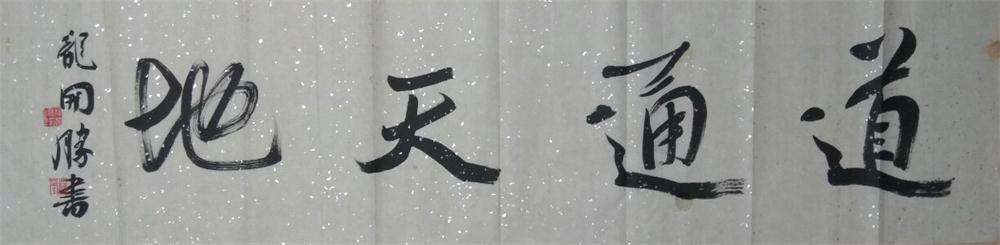 道通天地
龍開勝書